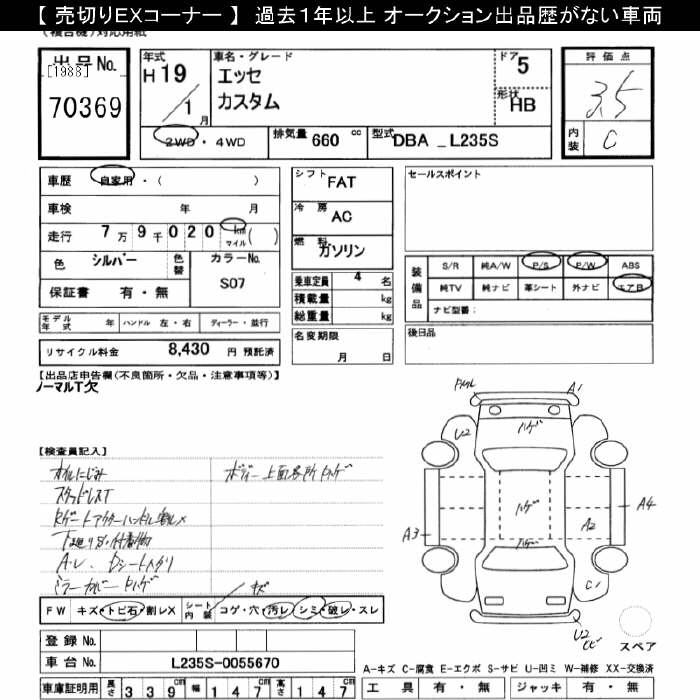 【 売切りEXコーナー 】 過去１年以上 オークション出品歴がない車両
(複合機)対応用紙
出品No.
[1988]
70369
年式
H 19
1 月
車名・グレード
エッセ
カスタム
ドア
5
形状
HB
評価点
3.5
内装
C
2WD ・ 4WD
排気量 660 cc
型式 DBA _ L235S
車歴 自家用 ・ ( )
車検 年 月
走行 7 万 9 千 0 2 0 km マイル ( )
色 シルバー
色替
カラーNo.
S07
保証書 有 ・ 無
モデル年式 年 ハンドル 左 ・ 右 ディーラー ・ 並行
リサイクル料金 8,430 円 預託済
シフト
FAT
冷房
AC
燃料
ガソリン
乗車定員 4 名
積載量 kg
総重量 kg
名変期限
月 日
セールスポイント
装備品
S/R 純A/W P/S P/W ABS
純TV 純ナビ 革シート 外ナビ エアB
ナビ型番：
後日品
【出品店申告欄(不良箇所・欠品・注意事項等)】
ノーマルT欠
【検査員記入】
オイルにじみ
スタッドレスT
Rゲートアウターハンドル割レ×
下廻りサビ・付着物
ミラーカバー
ボディー上面各所
A1
U2
ハゲ
A3
ハゲ
A4
A2
ハゲ
C1
U2
FW キズ・トビ石・割レX
シート内装
コゲ・穴・汚レ・シミ・破レ・スレ
キズ
スペア
登録 No.
車台 No. L235S-0055670
車庫証明用 長さ 3 3 9 cm 幅 1 4 7 cm 高さ 1 4 7 cm
A-キズ C-腐食 E-エクボ S-サビ U-凹ミ W-補修 XX-交換済
工具 有 ・ 無 ジャッキ 有 ・ 無